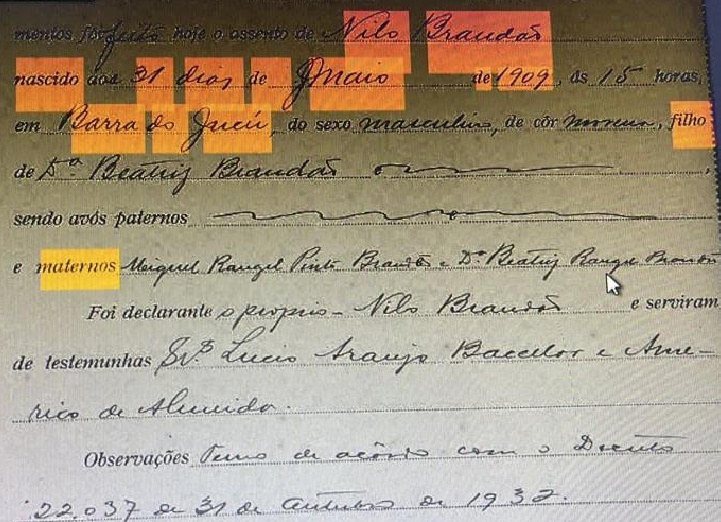 mentos foi feito hoje o assento de Nilo Brandão
nascido aos 31 dias de Maio de 1909, ás 15 horas,
em Barra do Jucú, do sexo masculino, de côr morena, filho
de Dª Beatriz Brandão
sendo avós paternos
e maternos Miguel Rangel Pinto Brandão e Dª Beatriz Rangel Brandão
Foi declarante o proprio - Nilo Brandão e serviram
de testemunhas Srs Lucio Araujo Bacelar e Ame-
rico de Almeida.
Observações Termo de acôrdo com o Decreto
22.037 de 31 de Outubro de 1932.